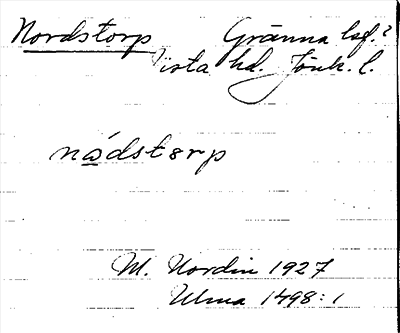 Nordstorp Gränna lsf.?
Vista hd. Jönk. l.
nǻdstərp
M. Nordin 1927
Ulma 1498:1